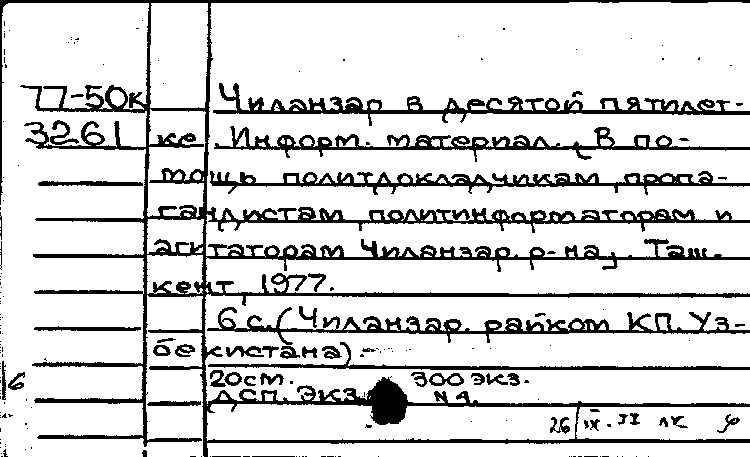 77-50к Чиланзар в десятой пятилет-
3261 ке. Информ. материал. [В по-
мощь политдокладчикам, пропа-
гандистам, политинформаторам и
агитаторам Чиланзар. р-на]. Таш-
кент, 1977.
6 с. (Чиланзар. райком КП. Уз-
бекистана).-
20 см. 300 экз.
ДСП. Экз. N 4.
26